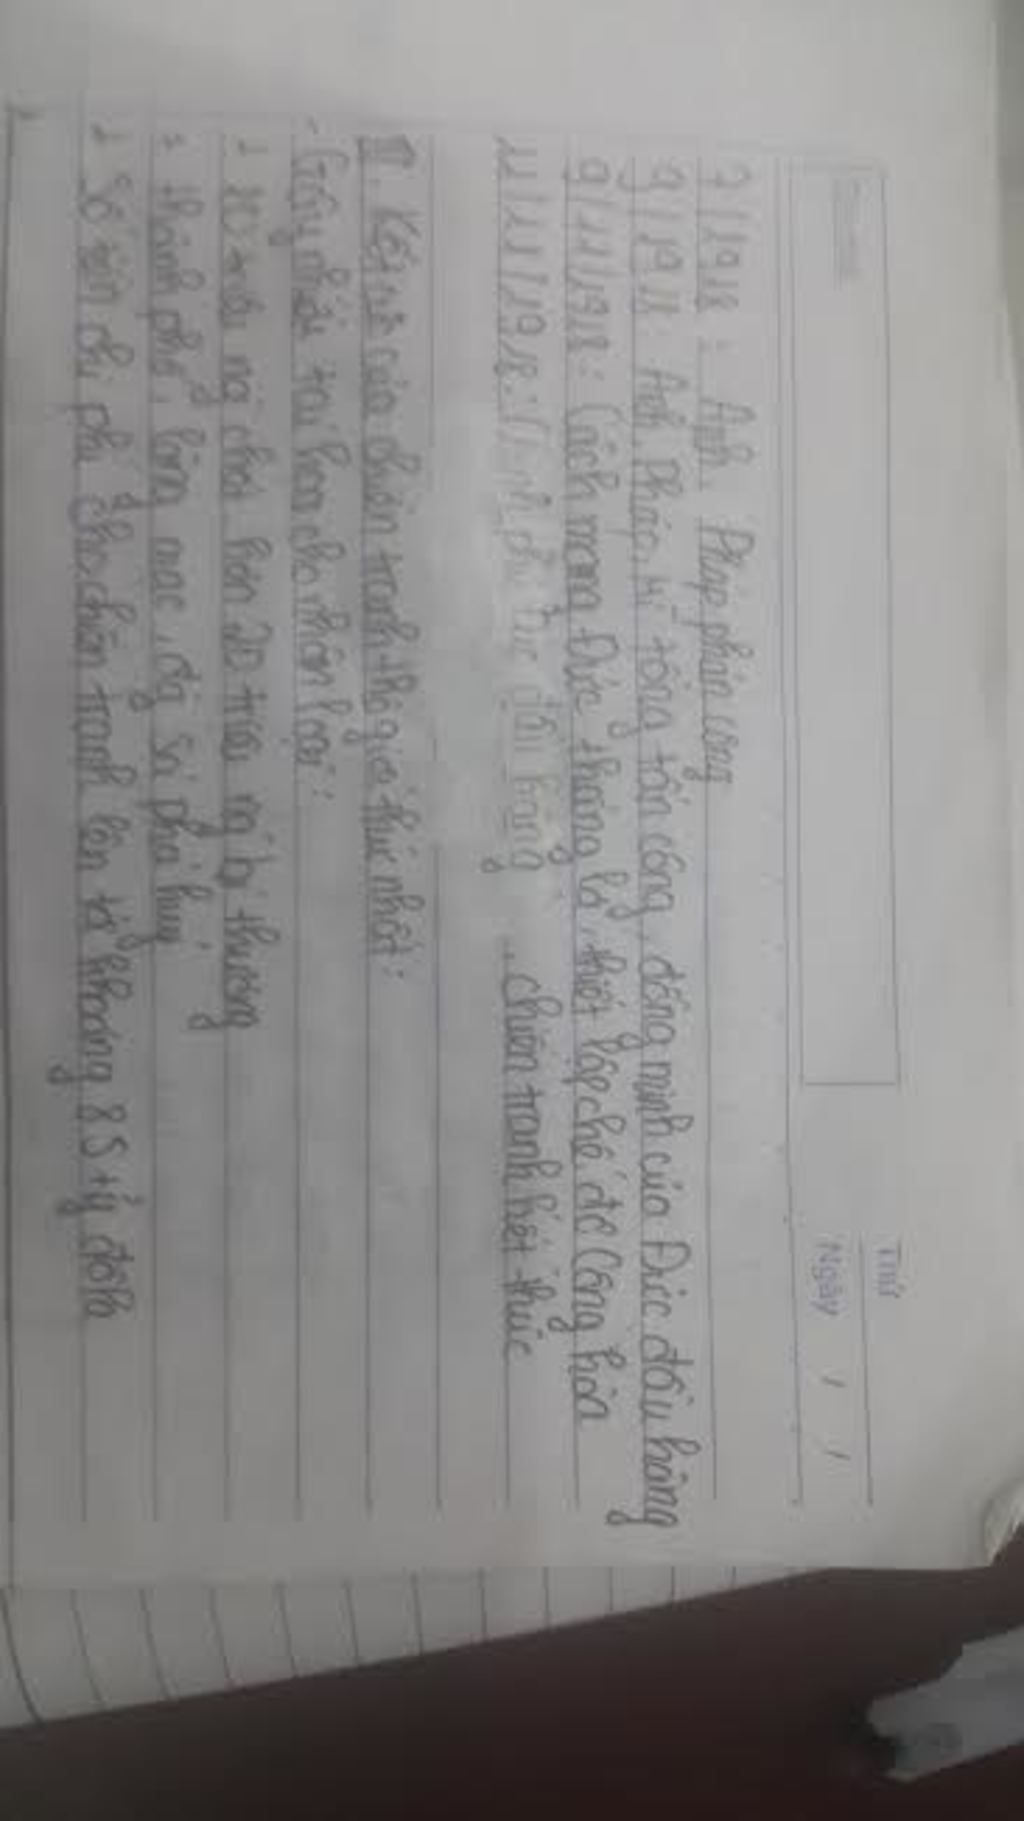 Thứ
Ngày / /
7/1918: Anh, Pháp phản công
9/1918 Anh, Pháp, Mĩ tổng tấn công, đồng minh của Đức đầu hàng
9/11/1918: Cách mạng Đức thắng lợi, thiết lập chế độ Cộng hòa
11/11/1918: Chính phủ Đức đầu hàng, chiến tranh kết thúc
III. Kết cục của chiến tranh thế giới thứ nhất:
- Gây nhiều tai họa cho nhân loại:
+ 10 triệu ng chết, hơn 20 triệu ng bị thương
+ thành phố, làng mạc, đg sá phá huỷ
+ Số tiền chi phí cho chiến tranh lên tới khoảng 85 tỷ đôla